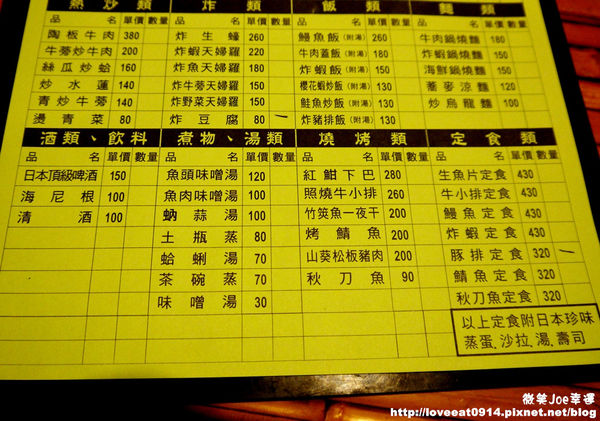 熱炒類
品名 單價 數量
陶板牛肉 380
牛蒡炒牛肉 200
絲瓜炒蛤 160
炒水蓮 140
青炒牛蒡 140
燙青菜 80
炸類
品名 單價 數量
炸生蠔 260
炸蝦天婦羅 220
炸魚天婦羅 180
炸牛蒡天婦羅 150
炸野菜天婦羅 150
炸豆腐 80 一
飯類
品名 單價 數量
鰻魚飯(附湯) 260
牛肉蓋飯(附湯) 180
炸蝦飯(附湯) 150
櫻花蝦炒飯(附湯) 130
鮭魚炒飯(附湯) 130
炸豬排飯(附湯) 130
麵類
品名 單價 數量
牛肉鍋燒麵 180
炸蝦鍋燒麵 150
海鮮鍋燒麵 150
蕎麥涼麵 120
炒烏龍麵 100
酒類、飲料
品名 單價 數量
日本頂級啤酒 150
海尼根 100
清酒 100
煮物、湯類
品名 單價 數量
魚頭味噌湯 120
魚肉味噌湯 100
蚋蒜湯 100
土瓶蒸 80
蛤蜊湯 70
茶碗蒸 70
味噌湯 30
燒烤類
品名 單價 數量
紅魽下巴 280
照燒牛小排 260
竹筴魚一夜干 200
烤鯖魚 200
山葵松板豬肉 200
秋刀魚 90
定食類
品名 單價 數量
生魚片定食 430
牛小排定食 430
鰻魚定食 430
炸蝦定食 430
豚排定食 320 一
鯖魚定食 320
秋刀魚定食 320
以上定食附日本珍味
蒸蛋.沙拉.湯.壽司
微笑Joe幸運
http://loveeat0914.pixnet.net/blog